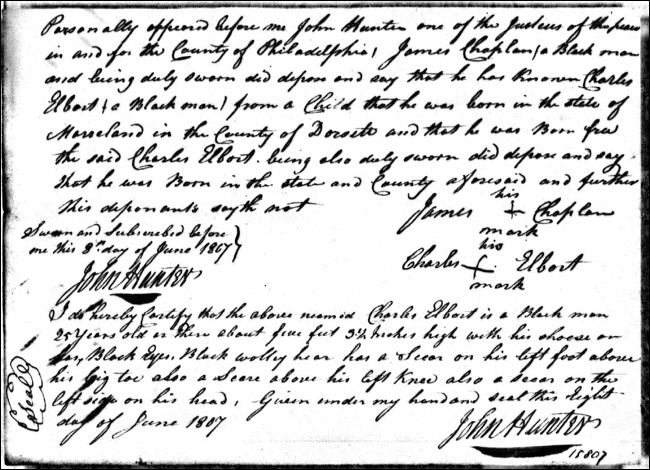 Personally appeared before me John Hunter one of the Justeus of the peace
in and for the County of Philadelphia, James Chaplan (a Black man
and being duly sworn did depose and say that he has Known Charles
Elbort (a Black man) from a Child that he was born in the state of
Marreland in the County of Dorsett and that he was Born free
the said Charles Elbort. being also duly sworn did depose and say
that he was Born in the state and County aforesaid and further
this deponants sayth not
his
James + Chaplan
mark
Sworn and Subscrebed before
me this 8th day of June 1807
his
Charles + Elbort
mark
John Hunter
I do hereby Certify that the above neamid Charles Elbort is a Black man
25 Years old or there about five feet 3½ Inches high with his shoose on
has Black Eyes Black wolley hear has a Scear on his left foot above
his big toe also a Scare above his left Knee also a scear on the
left side on his head, Giveen under my hand and seal this Eight
day of June 1807
Seal
John Hunter
15807